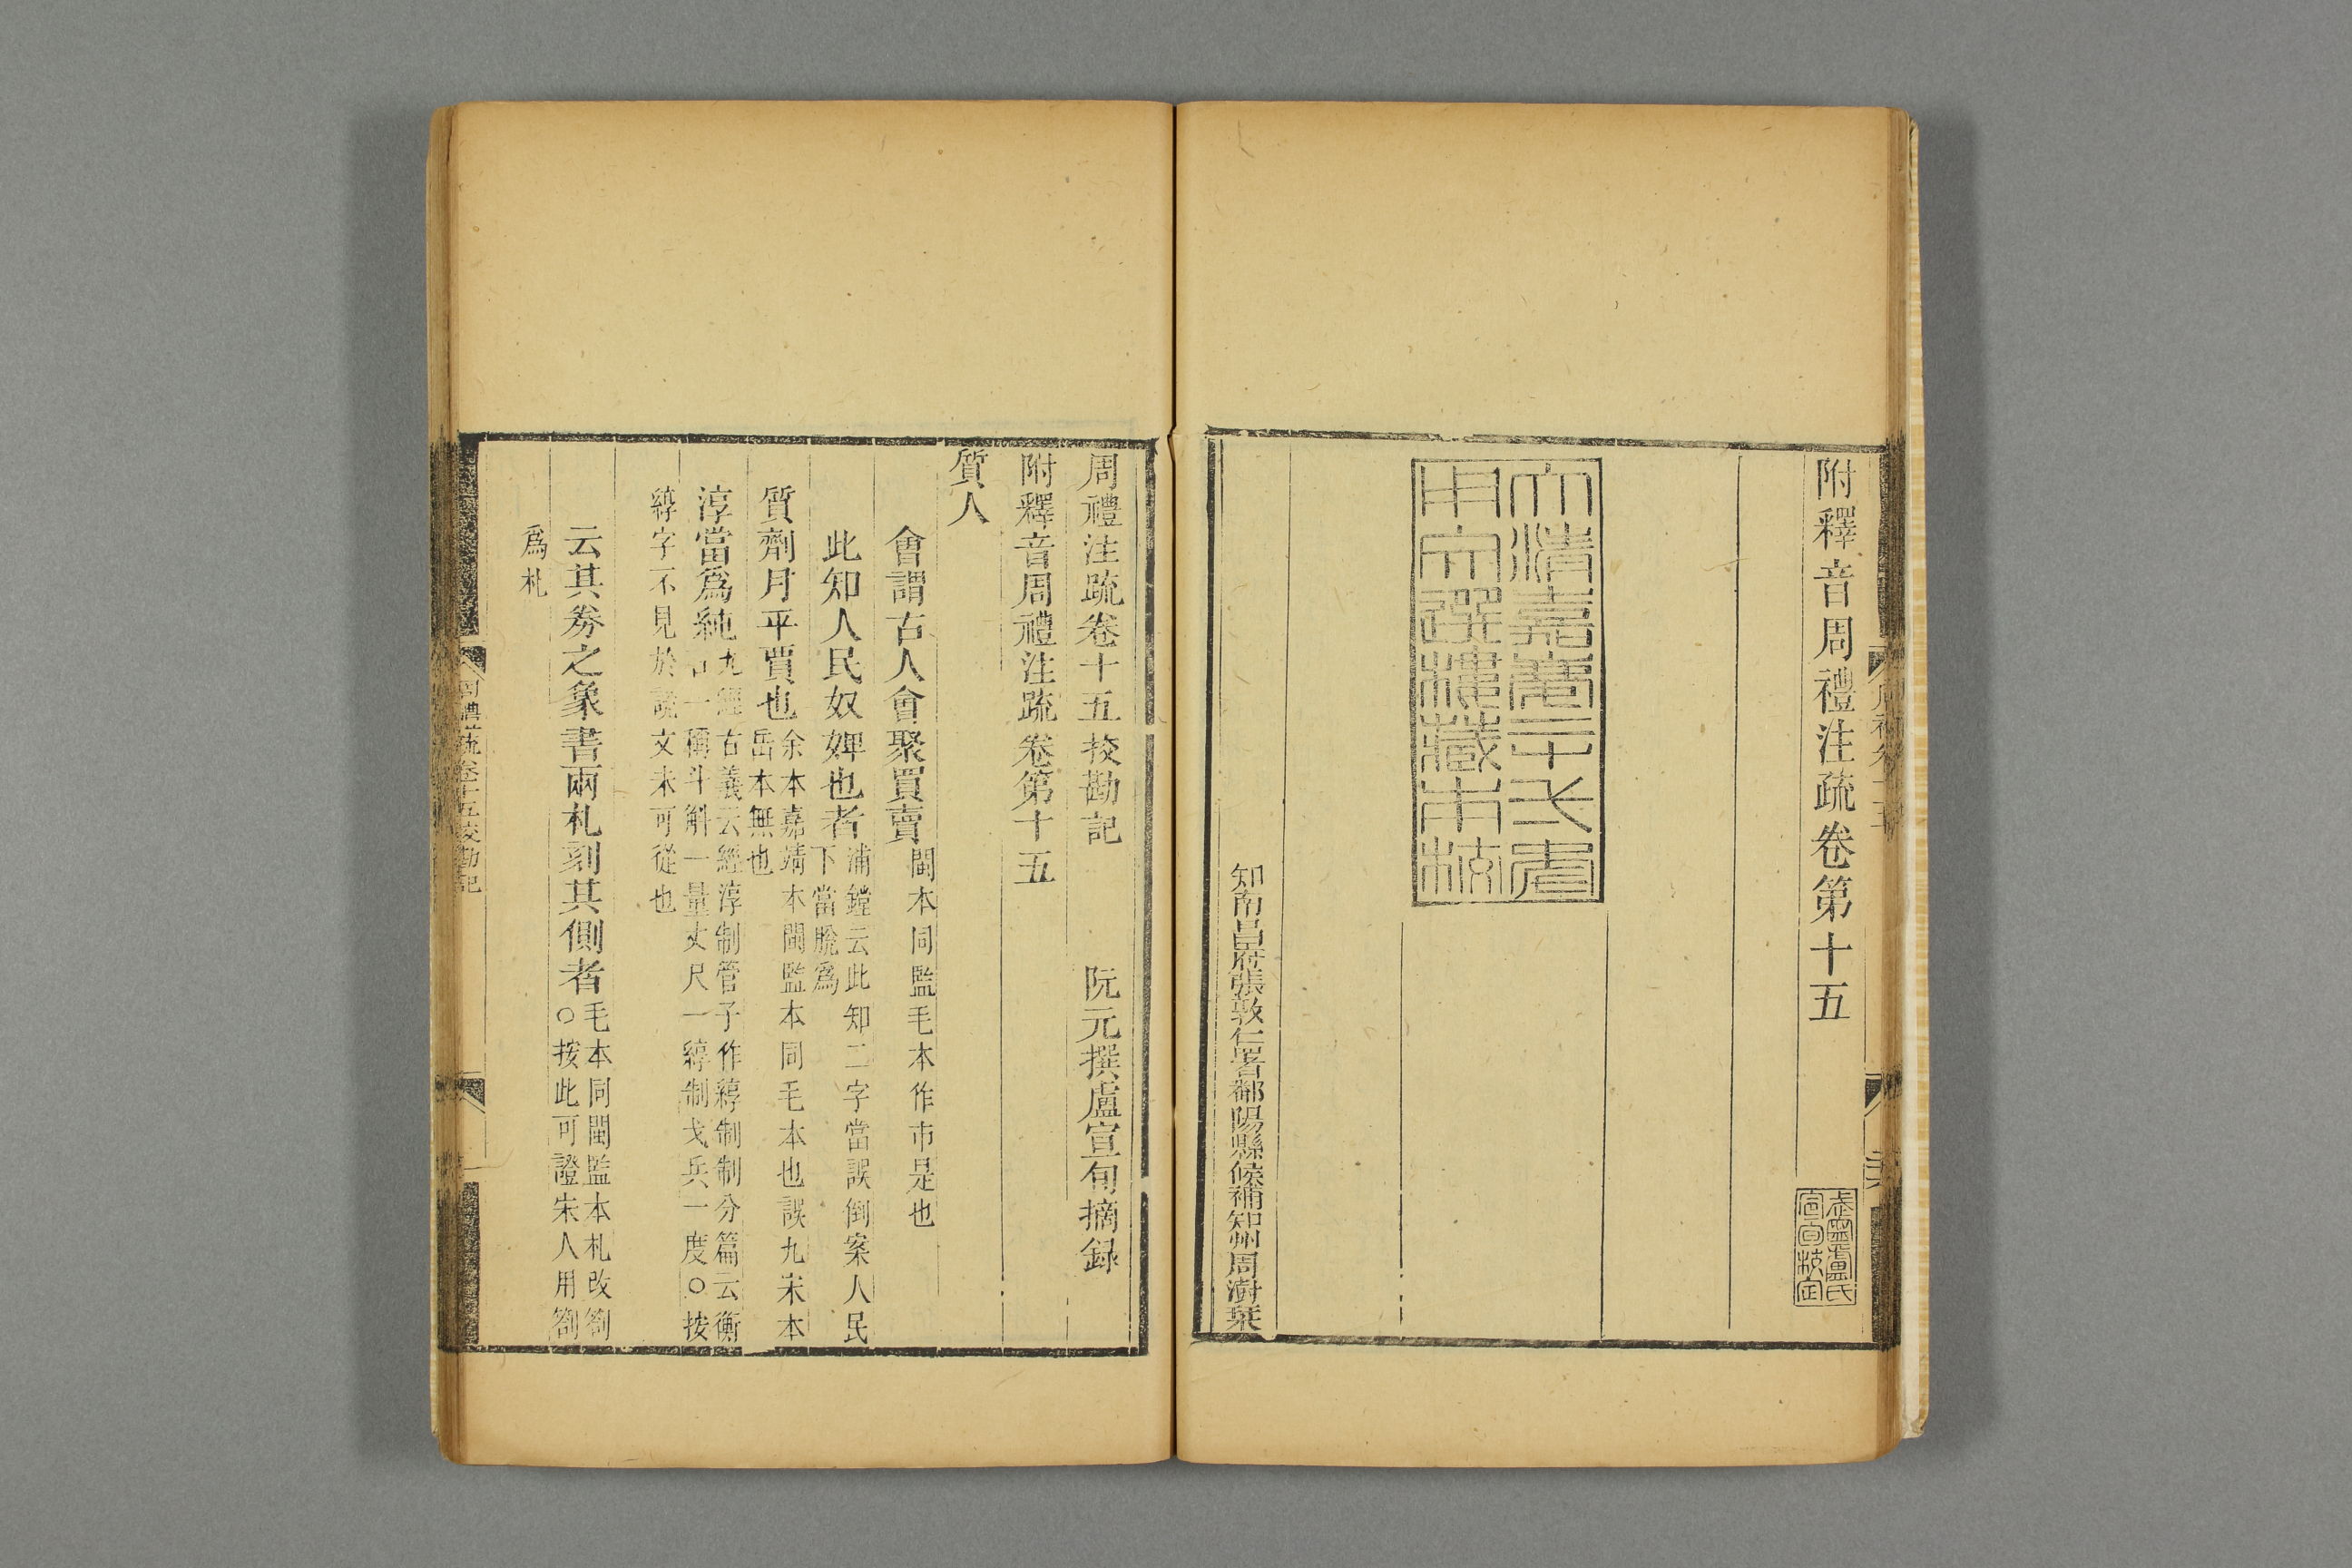 附釋音周禮注疏卷第十五
大清嘉慶二十
用文選樓藏本校
知南昌府張敦仁署鄱陽縣候補知州周澍栞
周禮注疏卷十五挍勘記
阮元撰盧宣旬摘録
附釋音周禮注疏卷第十五
質人
會謂古人會聚買賣
閩本同監毛本作市是也
此知人民奴婢也者
浦鏜云此知二字當誤倒案人民
下當脫爲
質劑月平賈也
余本嘉靖本閩監本同毛本也誤九宋本
岳本無也
淳當爲純
九經古義云經淳制管子作綧制制分篇云衡
一稱斗斛一量丈尺一綧制戈兵一度○按
綧字不見於說文未可從也
云其券之象書兩札刻其側者
毛本同閩監本札改劄
○按此可證宋人用劄
爲札
周禮注疏卷十五挍勘記